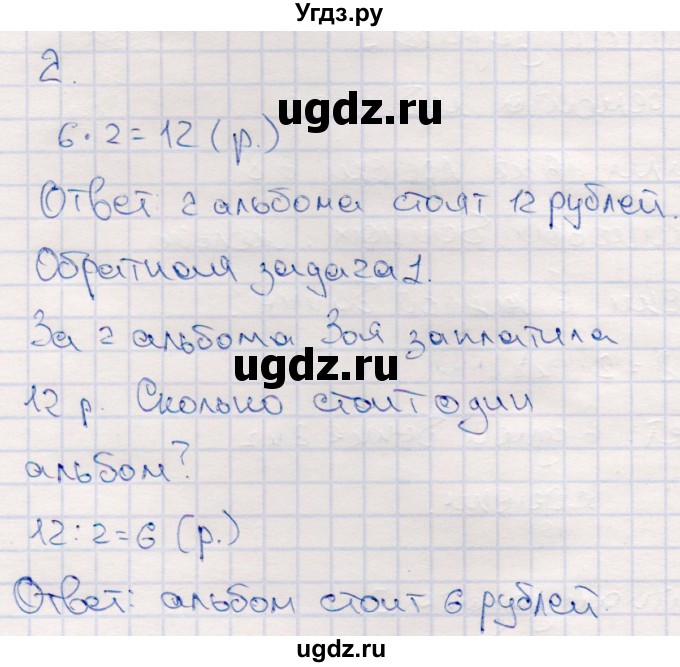 Угдз.ру
2.
6 · 2 = 12 (р.)
ugdz.ru
Ответ 2 альбома стоят 12 рублей.
Обратная задача 1.
За 2 альбома Зоя заплатила
ugdz.ru
12 р. Сколько стоит один
альбом?
12 : 2 = 6 (р.)
Ответ: альбом стоит 6 рублей.
ugdz.ru